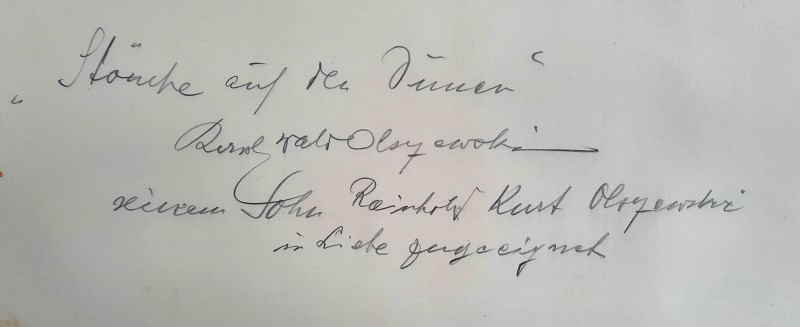 „Störche auf den Dünen“
Olszewski
seinem Sohn Reinhold Kurt Olszewski
in Liebe zugeeignet